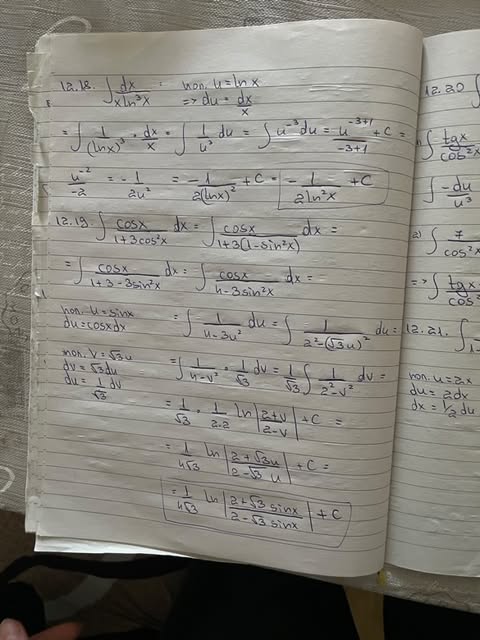 12.18. ∫ dx/(x ln³x) пол. u = ln x
=> du = dx/x
= ∫ 1/(ln x)³ · dx/x = ∫ 1/u³ du = ∫ u⁻³ du = u⁻³⁺¹/(-3+1) + C =
u⁻²/-2 = -1/(2u²) = -1/(2(ln x)²) + C = -1/(2ln²x) + C
12.19. ∫ cosx/(1+3cos²x) dx = ∫ cosx/(1+3(1-sin²x)) dx =
= ∫ cosx/(1+3-3sin²x) dx = ∫ cosx/(4-3sin²x) dx =
пол. u = sinx
du = cosx dx
= ∫ 1/(4-3u²) du = ∫ 1/(2²-(√3u)²) du =
пол. v = √3u
dv = √3 du
du = 1/√3 dv
= ∫ 1/(4-v²) · 1/√3 dv = 1/√3 ∫ 1/(2²-v²) dv =
= 1/√3 · 1/2.2 ln |(2+v)/(2-v)| + C =
= 1/4√3 ln |(2+√3u)/(2-√3u)| + C =
= 1/4√3 ln |(2+√3 sinx)/(2-√3 sinx)| + C
12.20 ∫
∫ tgx/cos²x
∫ -du/u³
2) ∫ 7/cos²x
=> ∫ tgx/cos²
12.21. ∫
пол. u = 2x
du = 2dx
dx = 1/2 du